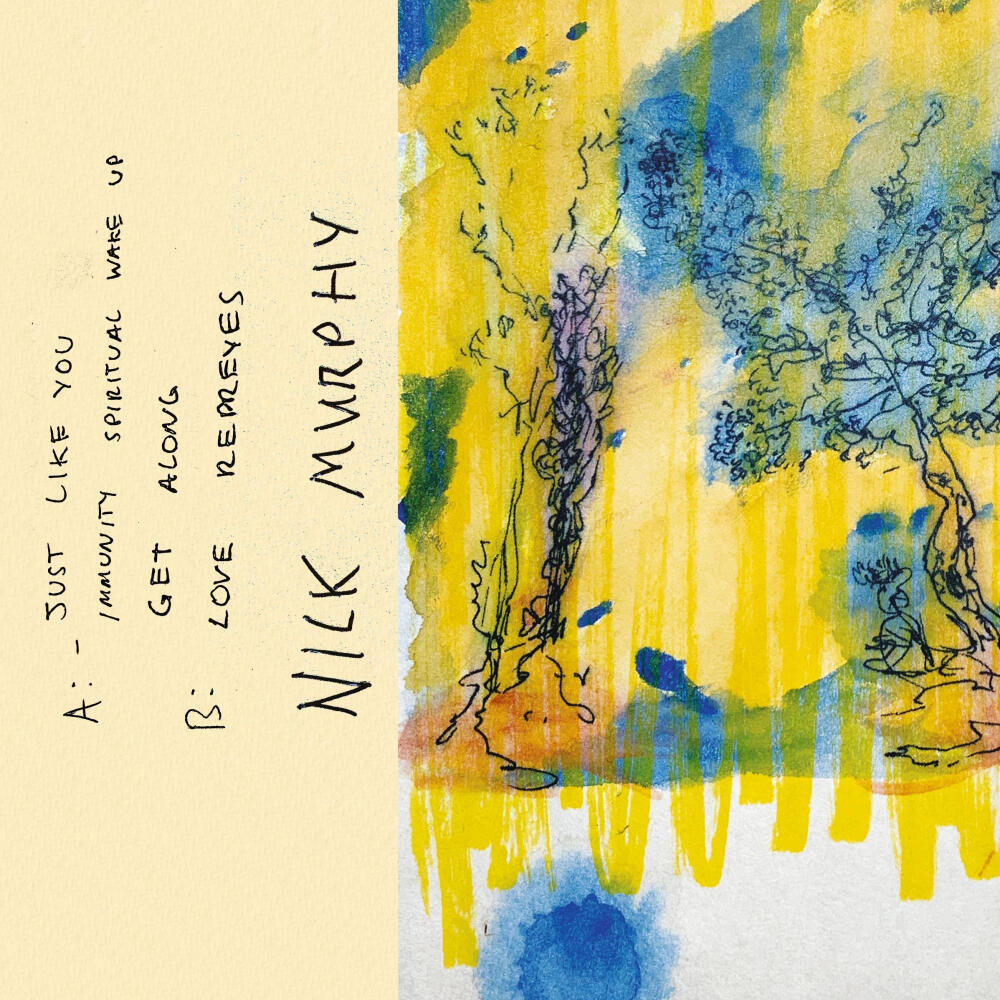 A: - JUST LIKE YOU
IMMUNITY SPIRITUAL WAKE UP
GET ALONG
B: LOVE REPREYES
NICK MURPHY